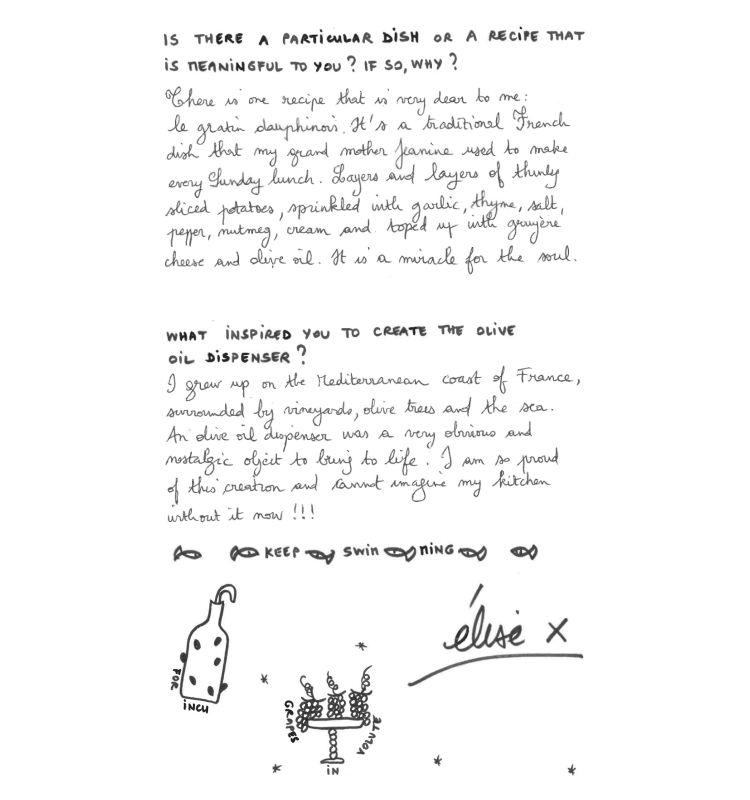 IS THERE A PARTICULAR DISH OR A RECIPE THAT
IS MEANINGFUL TO YOU? IF SO, WHY?
There is one recipe that is very dear to me:
le gratin dauphinois. It's a traditional French
dish that my grand mother Jeanine used to make
every Sunday lunch. Layers and layers of thinly
sliced potatoes, sprinkled with garlic, thyme, salt,
pepper, nutmeg, cream and toped up with gruyère
cheese and olive oil. It is a miracle for the soul.
WHAT INSPIRED YOU TO CREATE THE OLIVE
OIL DISPENSER?
I grew up on the Mediterranean coast of France,
surrounded by vineyards, olive trees and the sea.
An olive oil dispenser was a very obvious and
nostalgic object to bring to life. I am so proud
of this creation and cannot imagine my kitchen
without it now !!!
KEEP SWIMMING
élise x
FOR
INCU
GRAPES
VOLUTE
IN